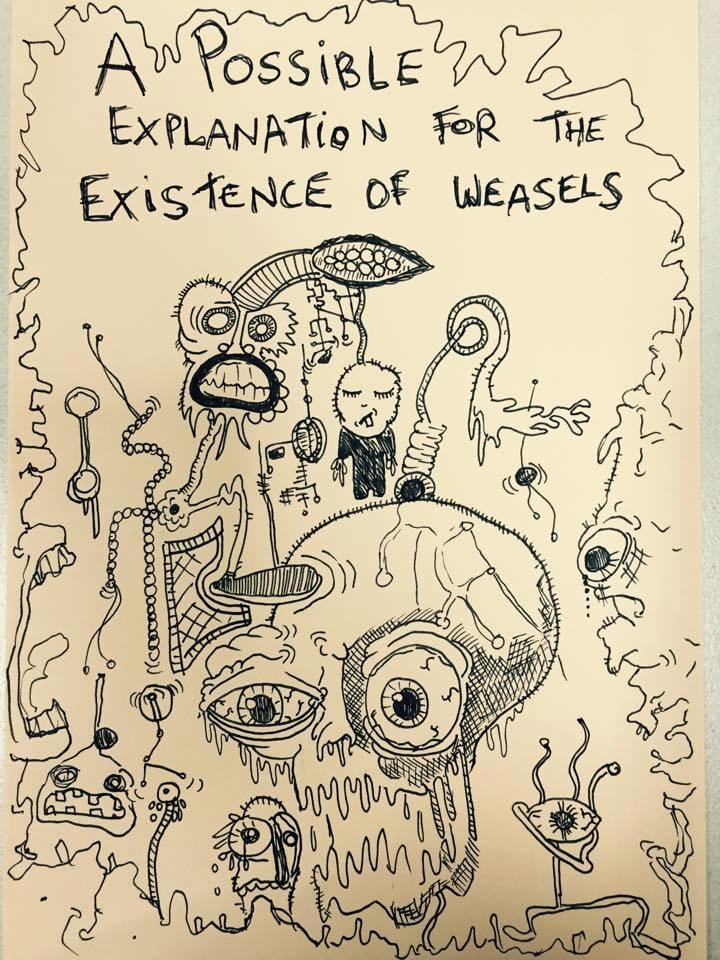 A POSSIBLE
EXPLANATION FOR THE
EXISTENCE OF WEASELS